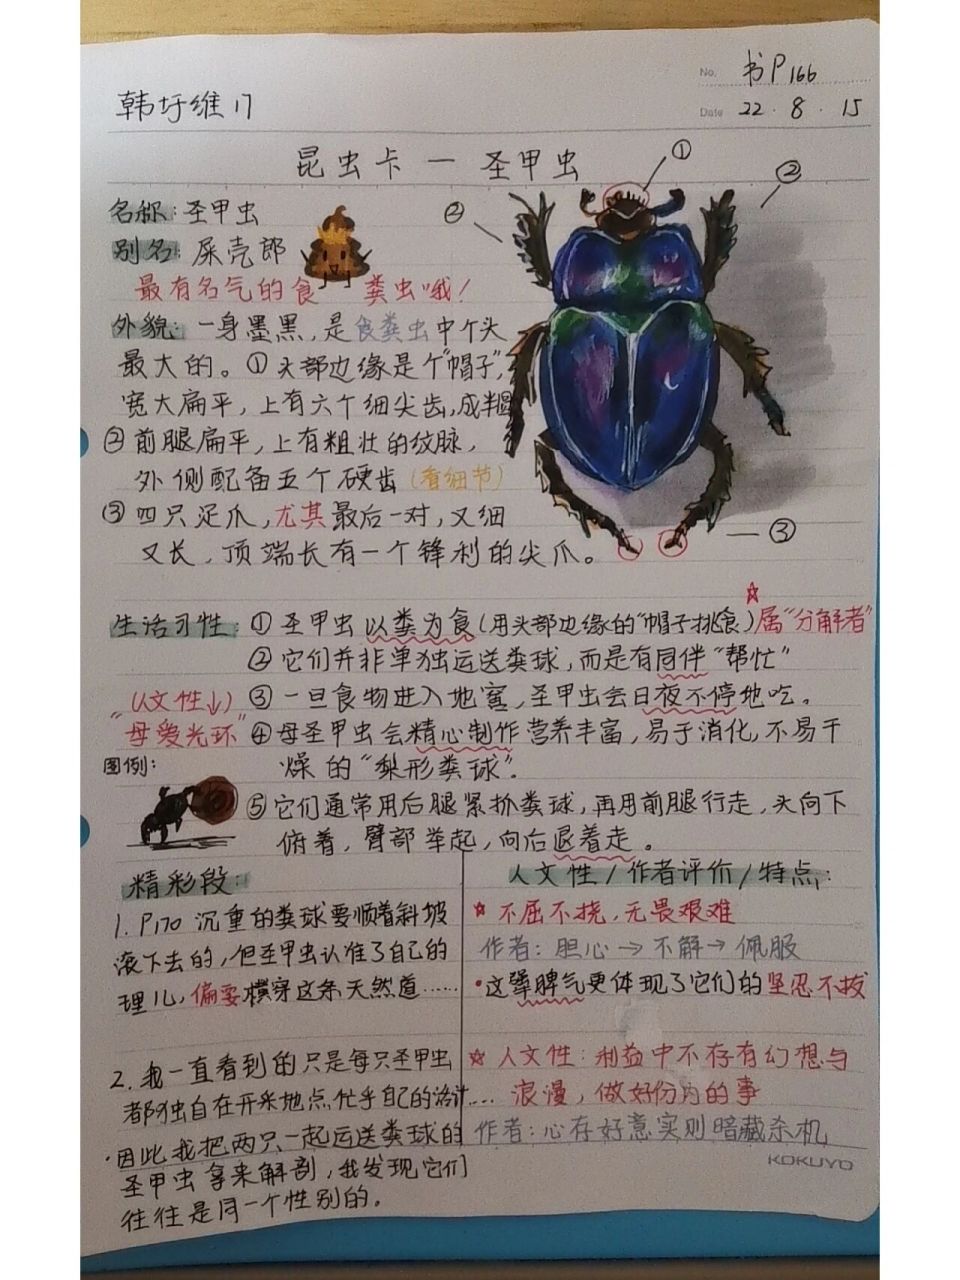 No. 书P166
韩圩维 17
Date 22 · 8 · 15
昆虫卡 — 圣甲虫
①
②
②
名称: 圣甲虫
别名: 屎壳郎
最有名气的食 粪虫哦!
外貌: 一身墨黑,是食粪虫中个头
最大的。①头部边缘是个"帽子",
宽大扁平,上有六个细尖齿,成半圆
②前腿扁平,上有粗壮的纹脉,
外侧配备五个硬齿 (看细节)
③四只足爪,尤其最后一对,又细
又长,顶端长有一个锋利的尖爪。
③
生活习性: ①圣甲虫以粪为食(用头部边缘的"帽子挑食)属"分解者"
②它们并非单独运送粪球,而是有同伴"帮忙"
(人文性↓) ③一旦食物进入地窖,圣甲虫会日夜不停地吃。
"母爱光环" ④母圣甲虫会精心制作营养丰富,易于消化,不易干
图例: 燥的"梨形粪球".
⑤它们通常用后腿紧抓粪球,再用前腿行走,头向下
俯着,臂部举起,向后退着走。
精彩段:
1. P170 沉重的粪球要顺着斜坡
滚下去的,但圣甲虫认准了自己的
理儿,偏要横穿这条天然道……
2. 我一直看到的只是每只圣甲虫
都独自在开采地点忙乎自己的活计…
·因此我把两只一起运送粪球的
圣甲虫拿来解剖,我发现它们
往往是同一个性别的。
人文性/作者评价/特点:
☆ 不屈不挠,无畏艰难
作者: 担心→不解→佩服
·这犟脾气更体现了它们的坚忍不拔
☆ 人文性: 利益中不存有幻想与
浪漫,做好份内的事
作者: 心存好意实则暗藏杀机
KOKUYO